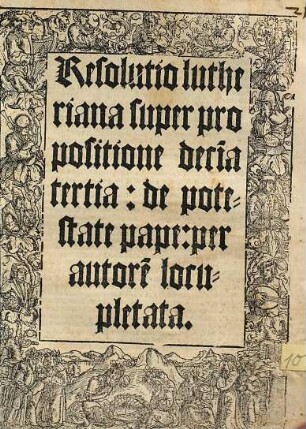 Resolutio luthe
riana super pro
positione decīa
tertia : de pote-
state pape:per
autorē locu-
pletata.
10